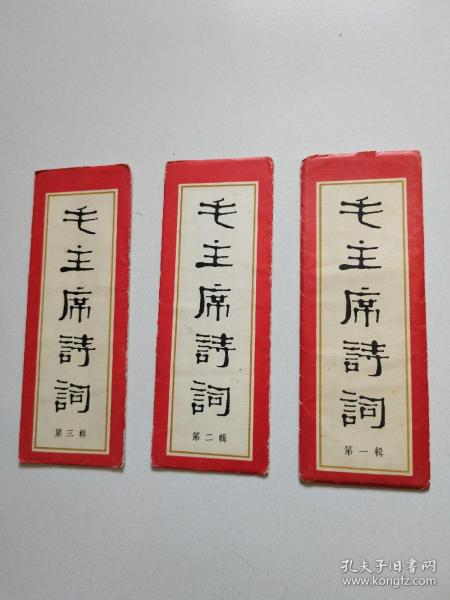 毛主席詩詞
第三輯
毛主席詩詞
第二輯
毛主席詩詞
第一輯
孔夫子旧书网
www.kongfz.com